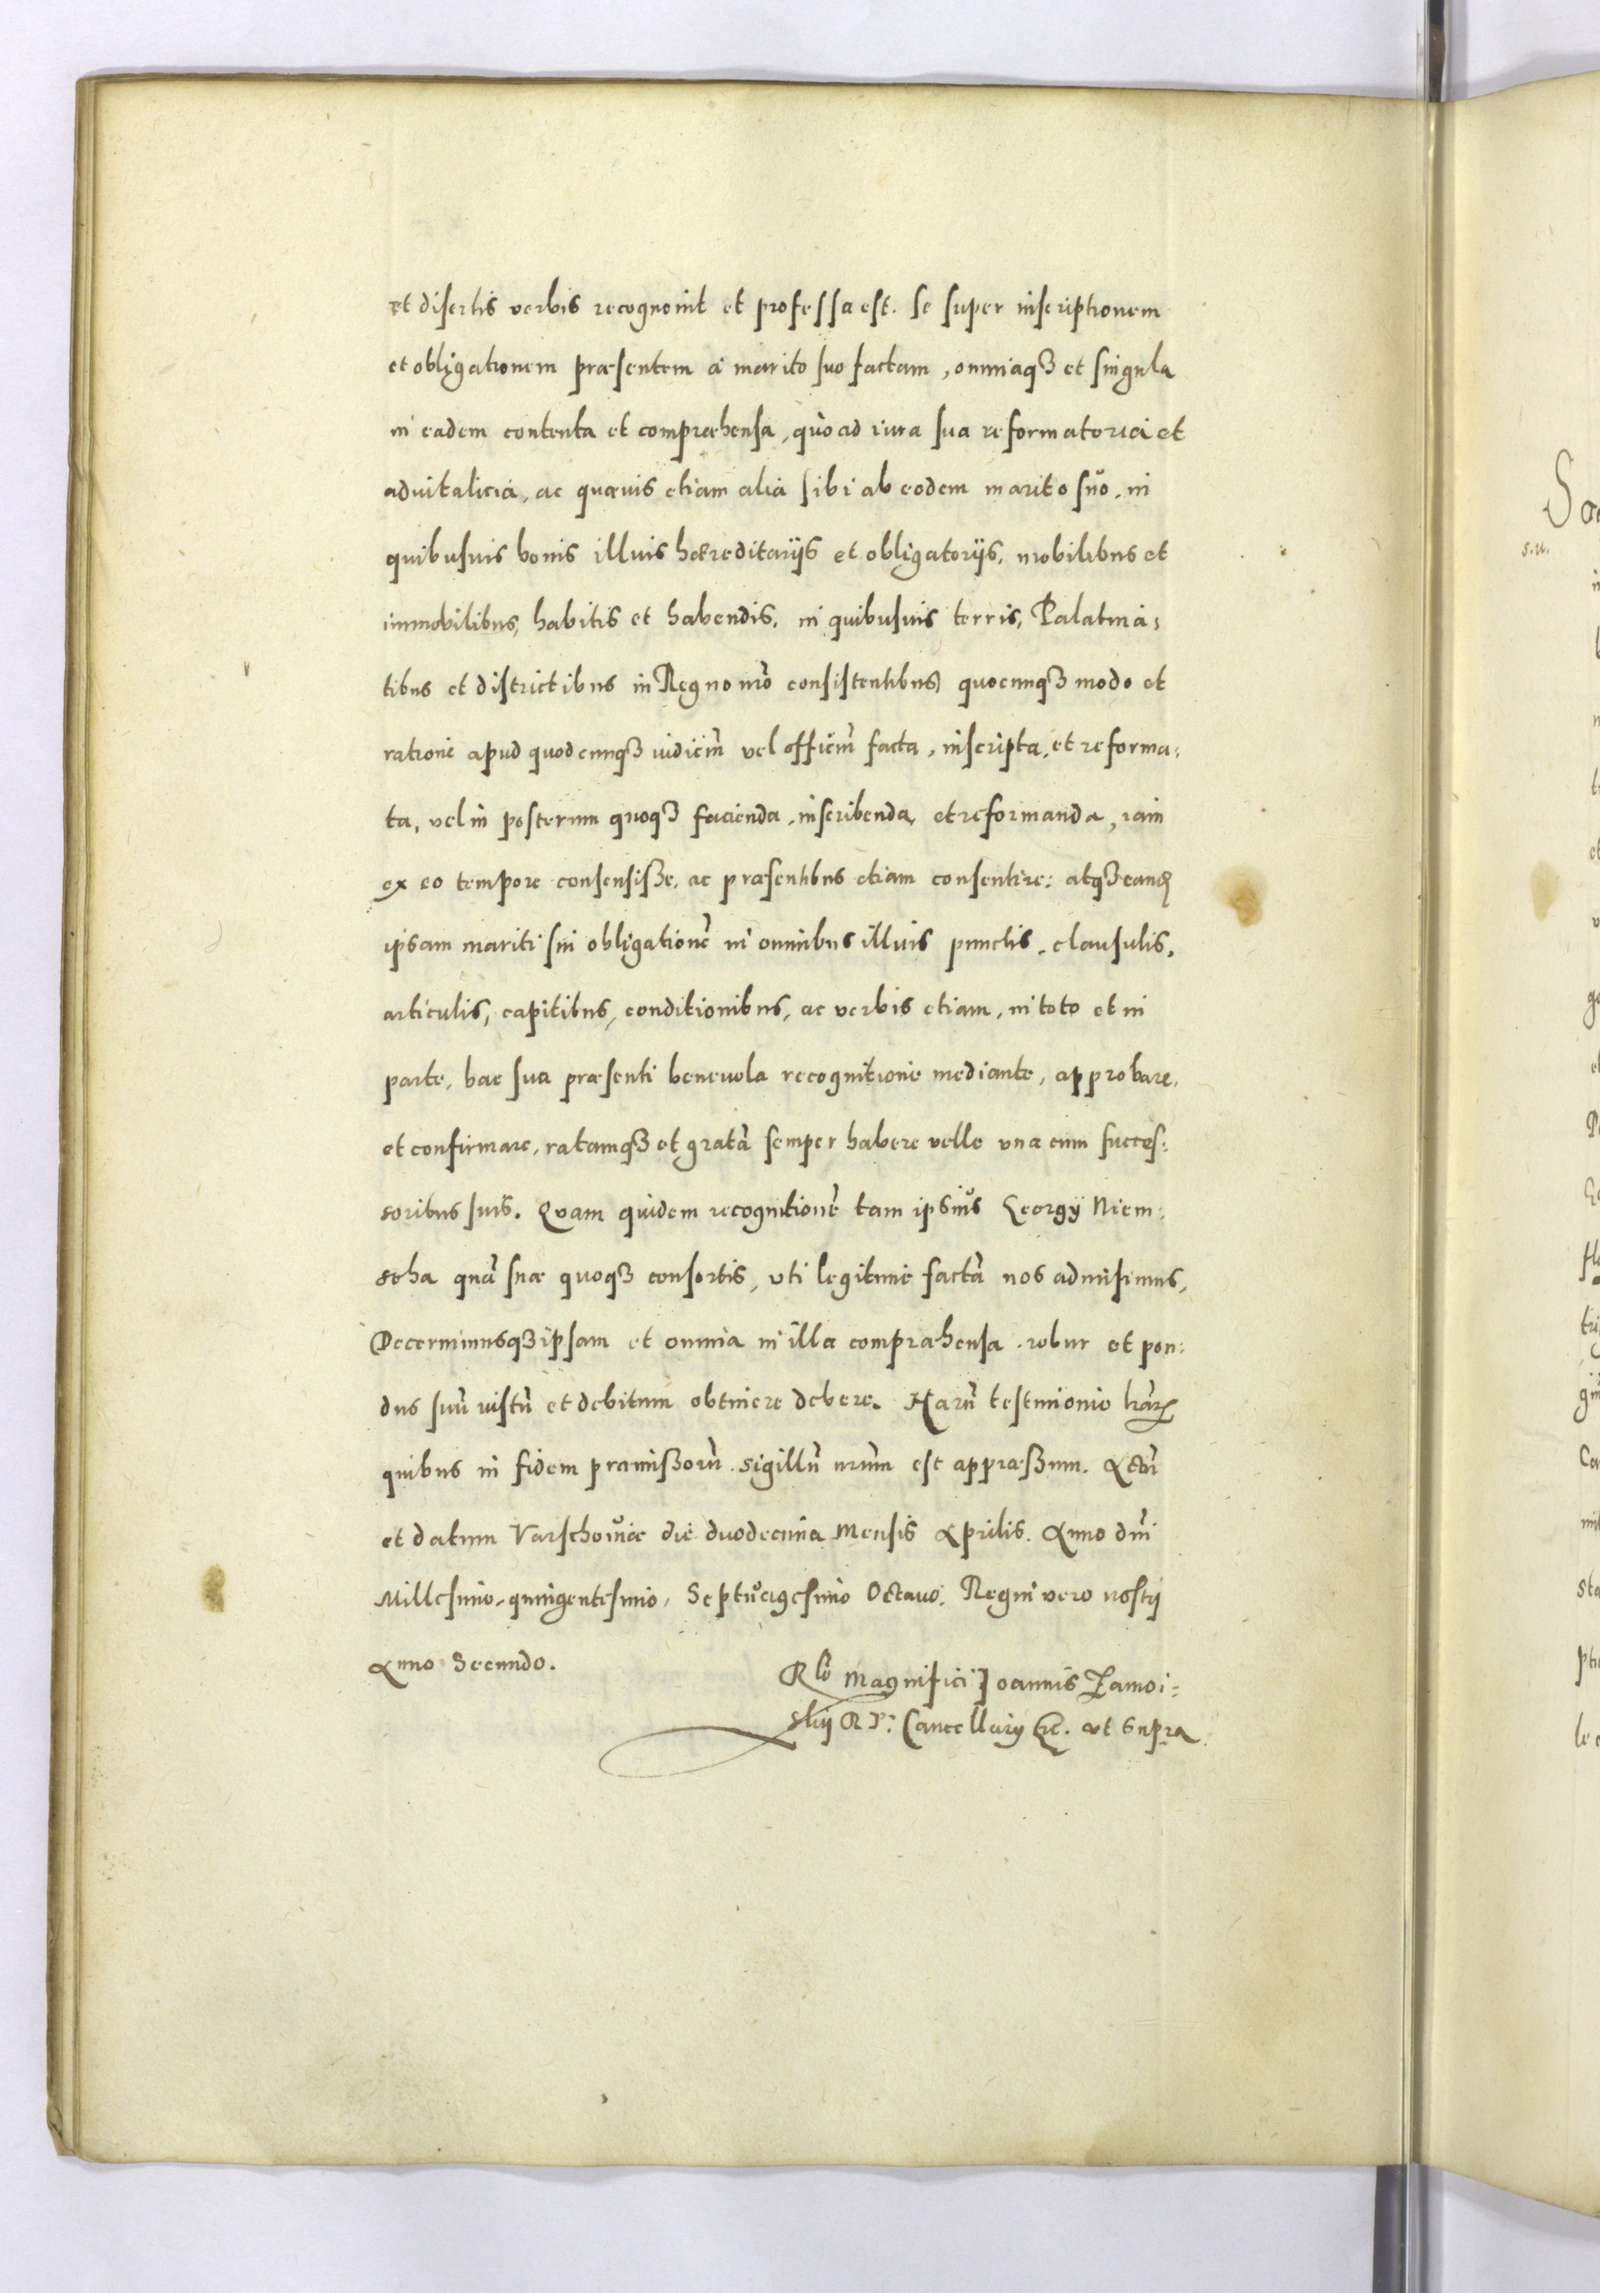 et disertis verbis recognouit et professa est. se super inscriptionem
et obligationem præsentem á marito suo factam, omniaqȝ et singula
in eadem contenta et compræhensa, quò ad iura sua reformatoria et
aduitalicia, ac quæuis etiam alia sibi ab eodem marito sŭo, in
quibusuis bonis illius hæreditarijs et obligatorijs, mobilibus et
immobilibus, habitis et habendis, in quibusuis terris, Palatina:
tibus et districtibus in Regno nr̃o consistentibus) quocunqȝ modo et
ratione apud quodcunqȝ iudiciũ vel officiũ facta, inscripta, et reforma:
ta, vel in posterum quoqȝ facienda, inscribenda, et reformanda, iam
ex eo tempore consensisse, ac præsentibus etiam consentire: atqȝ eand
ipsam mariti sui obligationẽ in omnibus illius punctis, clausulis,
articulis, capitibus, conditionibus, ac verbis etiam, in toto et in
parte, hac sua præsenti beneuola recognitione mediante, approbare,
et confirmare, ratamqȝ et gratã semper habere velle vna cum succes:
soribus suis. Quam quidem recognitionẽ tam ipsiŭs Georgÿ Niem:
scha quã suæ quoqȝ consortis, vti legitime factã nos admisimus,
Decernimusqȝ ipsam et omnia in illa compræhensa robur et pon:
dus suũ iustũ et debitum obtinere debere. Harũ testimonio lr̃arꝝ
quibus in fidem præmissorũ sigillũ nr̃um est appræssum. Actũ
et datum Varschoŭiæ die duodecima Mensis Aprilis. Anno dñi
Millesimo, quingentesimo, Septŭagesimo Octauo. Regni vero nostrj
Anno Secundo.
Rlõ Magnifici Joannis Zamoi:
skij R P: Cancellarÿ &c. vt supra